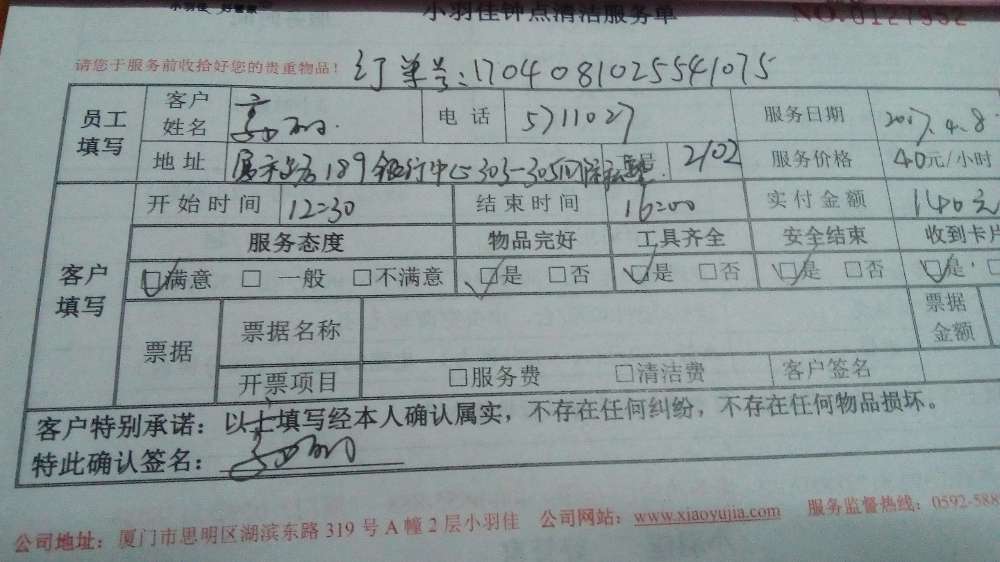 小羽佳 好管家
小羽佳钟点清洁服务单
NO:0127932
请您于服务前收拾好您的贵重物品！ 订单号:1704081025541075
员工填写 客户姓名 电话 5711027 服务日期 2017.4.8
地址 189银行中心303-305 2102 服务价格 40元/小时
客户填写 开始时间 12:30 结束时间 16:00 实付金额 140元
服务态度 物品完好 工具齐全 安全结束 收到卡片
☑满意 □一般 □不满意 ☑是 □否 ☑是 □否 ☑是 □否 ☑是 □
票据 票据名称 票据金额
开票项目 □服务费 □清洁费 客户签名
客户特别承诺：以上填写经本人确认属实，不存在任何纠纷，不存在任何物品损坏。
特此确认签名：
公司地址：厦门市思明区湖滨东路319号A幢2层小羽佳 公司网站：www.xiaoyujia.com 服务监督热线：0592-588